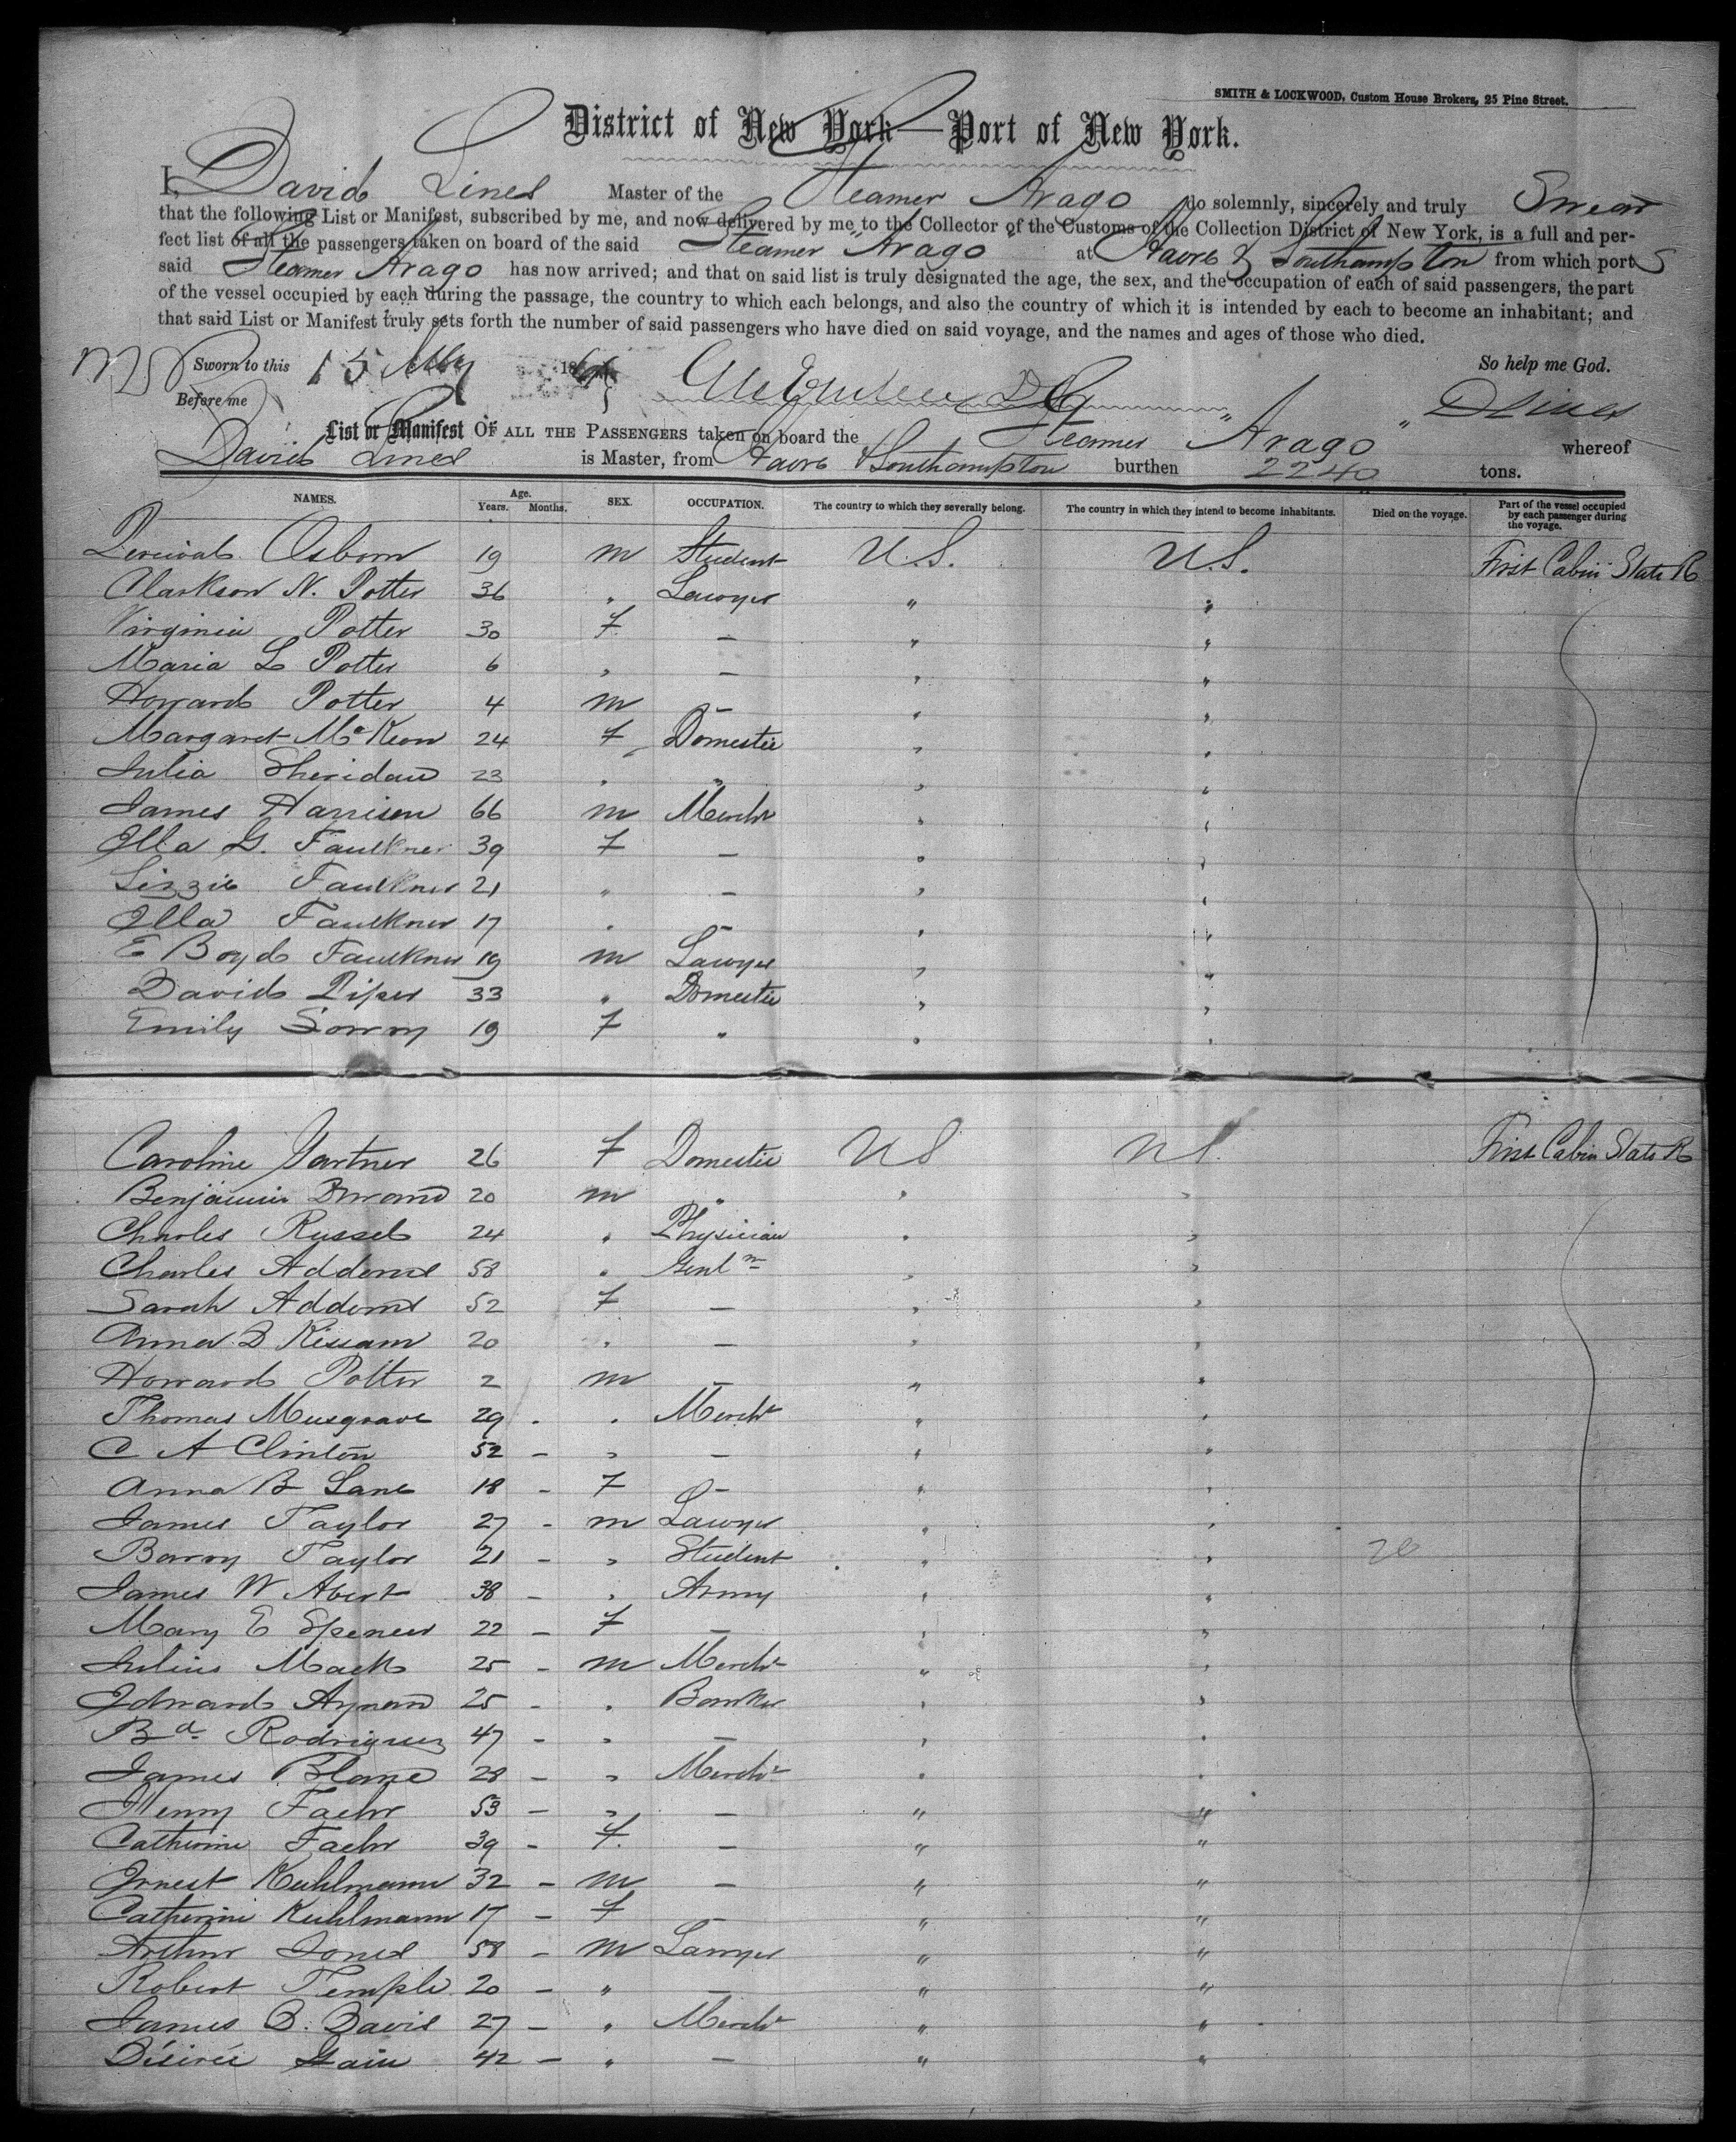 SMITH & LOCKWOOD, Custom House Brokers, 25 Pine Street.
District of New York—Port of New York.
I, David Lines Master of the Steamer Arago do solemnly, sincerely and truly Swear
that the following List or Manifest, subscribed by me, and now delivered by me to the Collector of the Customs of the Collection District of New York, is a full and per-
fect list of all the passengers taken on board of the said Steamer "Arago" at Havre & Southampton from which ports
said Steamer Arago has now arrived; and that on said list is truly designated the age, the sex, and the occupation of each of said passengers, the part
of the vessel occupied by each during the passage, the country to which each belongs, and also the country of which it is intended by each to become an inhabitant; and
that said List or Manifest truly sets forth the number of said passengers who have died on said voyage, and the names and ages of those who died.
Sworn to this 15 186 So help me God.
Before me D Lines
List or Manifest OF ALL THE PASSENGERS taken on board the Steamer "Arago" whereof
David Lines is Master, from Havre & Southampton burthen 2240 tons.
NAMES. Age. Years. Months. SEX. OCCUPATION. The country to which they severally belong. The country in which they intend to become inhabitants. Died on the voyage. Part of the vessel occupied by each passenger during the voyage.
Percival Osborn 19 M Student U.S. U.S. First Cabin State R
Clarkson N. Potter 36 " Lawyer " "
Virginia Potter 30 F — " "
Maria L Potter 6 " — " "
Howard Potter 4 M — " "
Margaret McKeon 24 F Domestic " "
Julia Sheridan 23 " " " "
James Harrison 66 M Mercht " "
Ella G. Faulkner 39 F — " "
Lizzie Faulkner 21 " — " "
Ella Faulkner 17 " — " "
E Boyd Faulkner 19 M Lawyer " "
David Piper 33 " Domestic " "
Emily 19 F " " "
Caroline Gartner 26 F Domestic U S U S. First Cabin State R
Benjamin Durand 20 M " " "
Charles Russel 24 " Physician " "
Charles Addoms 58 " Gentn " "
Sarah Addoms 52 F — " "
Anna D Kissam 20 " — " "
Howard Potter 2 M — " "
Thomas Musgrave 29 - " Mercht " "
C A Clinton 52 - " — " "
Anna B Lane 18 - F — " "
James Taylor 27 - M Lawyer " "
Barry Taylor 21 - " Student " "
James W Abert 38 - " Army " "
Mary E Spencer 22 - F — " "
Julius Mack 25 - M Mercht " "
Edward 25 - " Banker " "
Ba Rodriguez 47 - " — " "
James Blane 28 - " Mercht " "
Henry Faehr 53 - " — " "
Catherine Faehr 39 - F. — " "
Ernest Kuhlmann 32 - M — " "
Catherine Kuhlmann 17 - F — " "
Arthur Jones 58 - M Lawyer " "
Robert Temple 20 - " — " "
James B. Davis 27 - " Mercht " "
Désirée 42 - " — " "